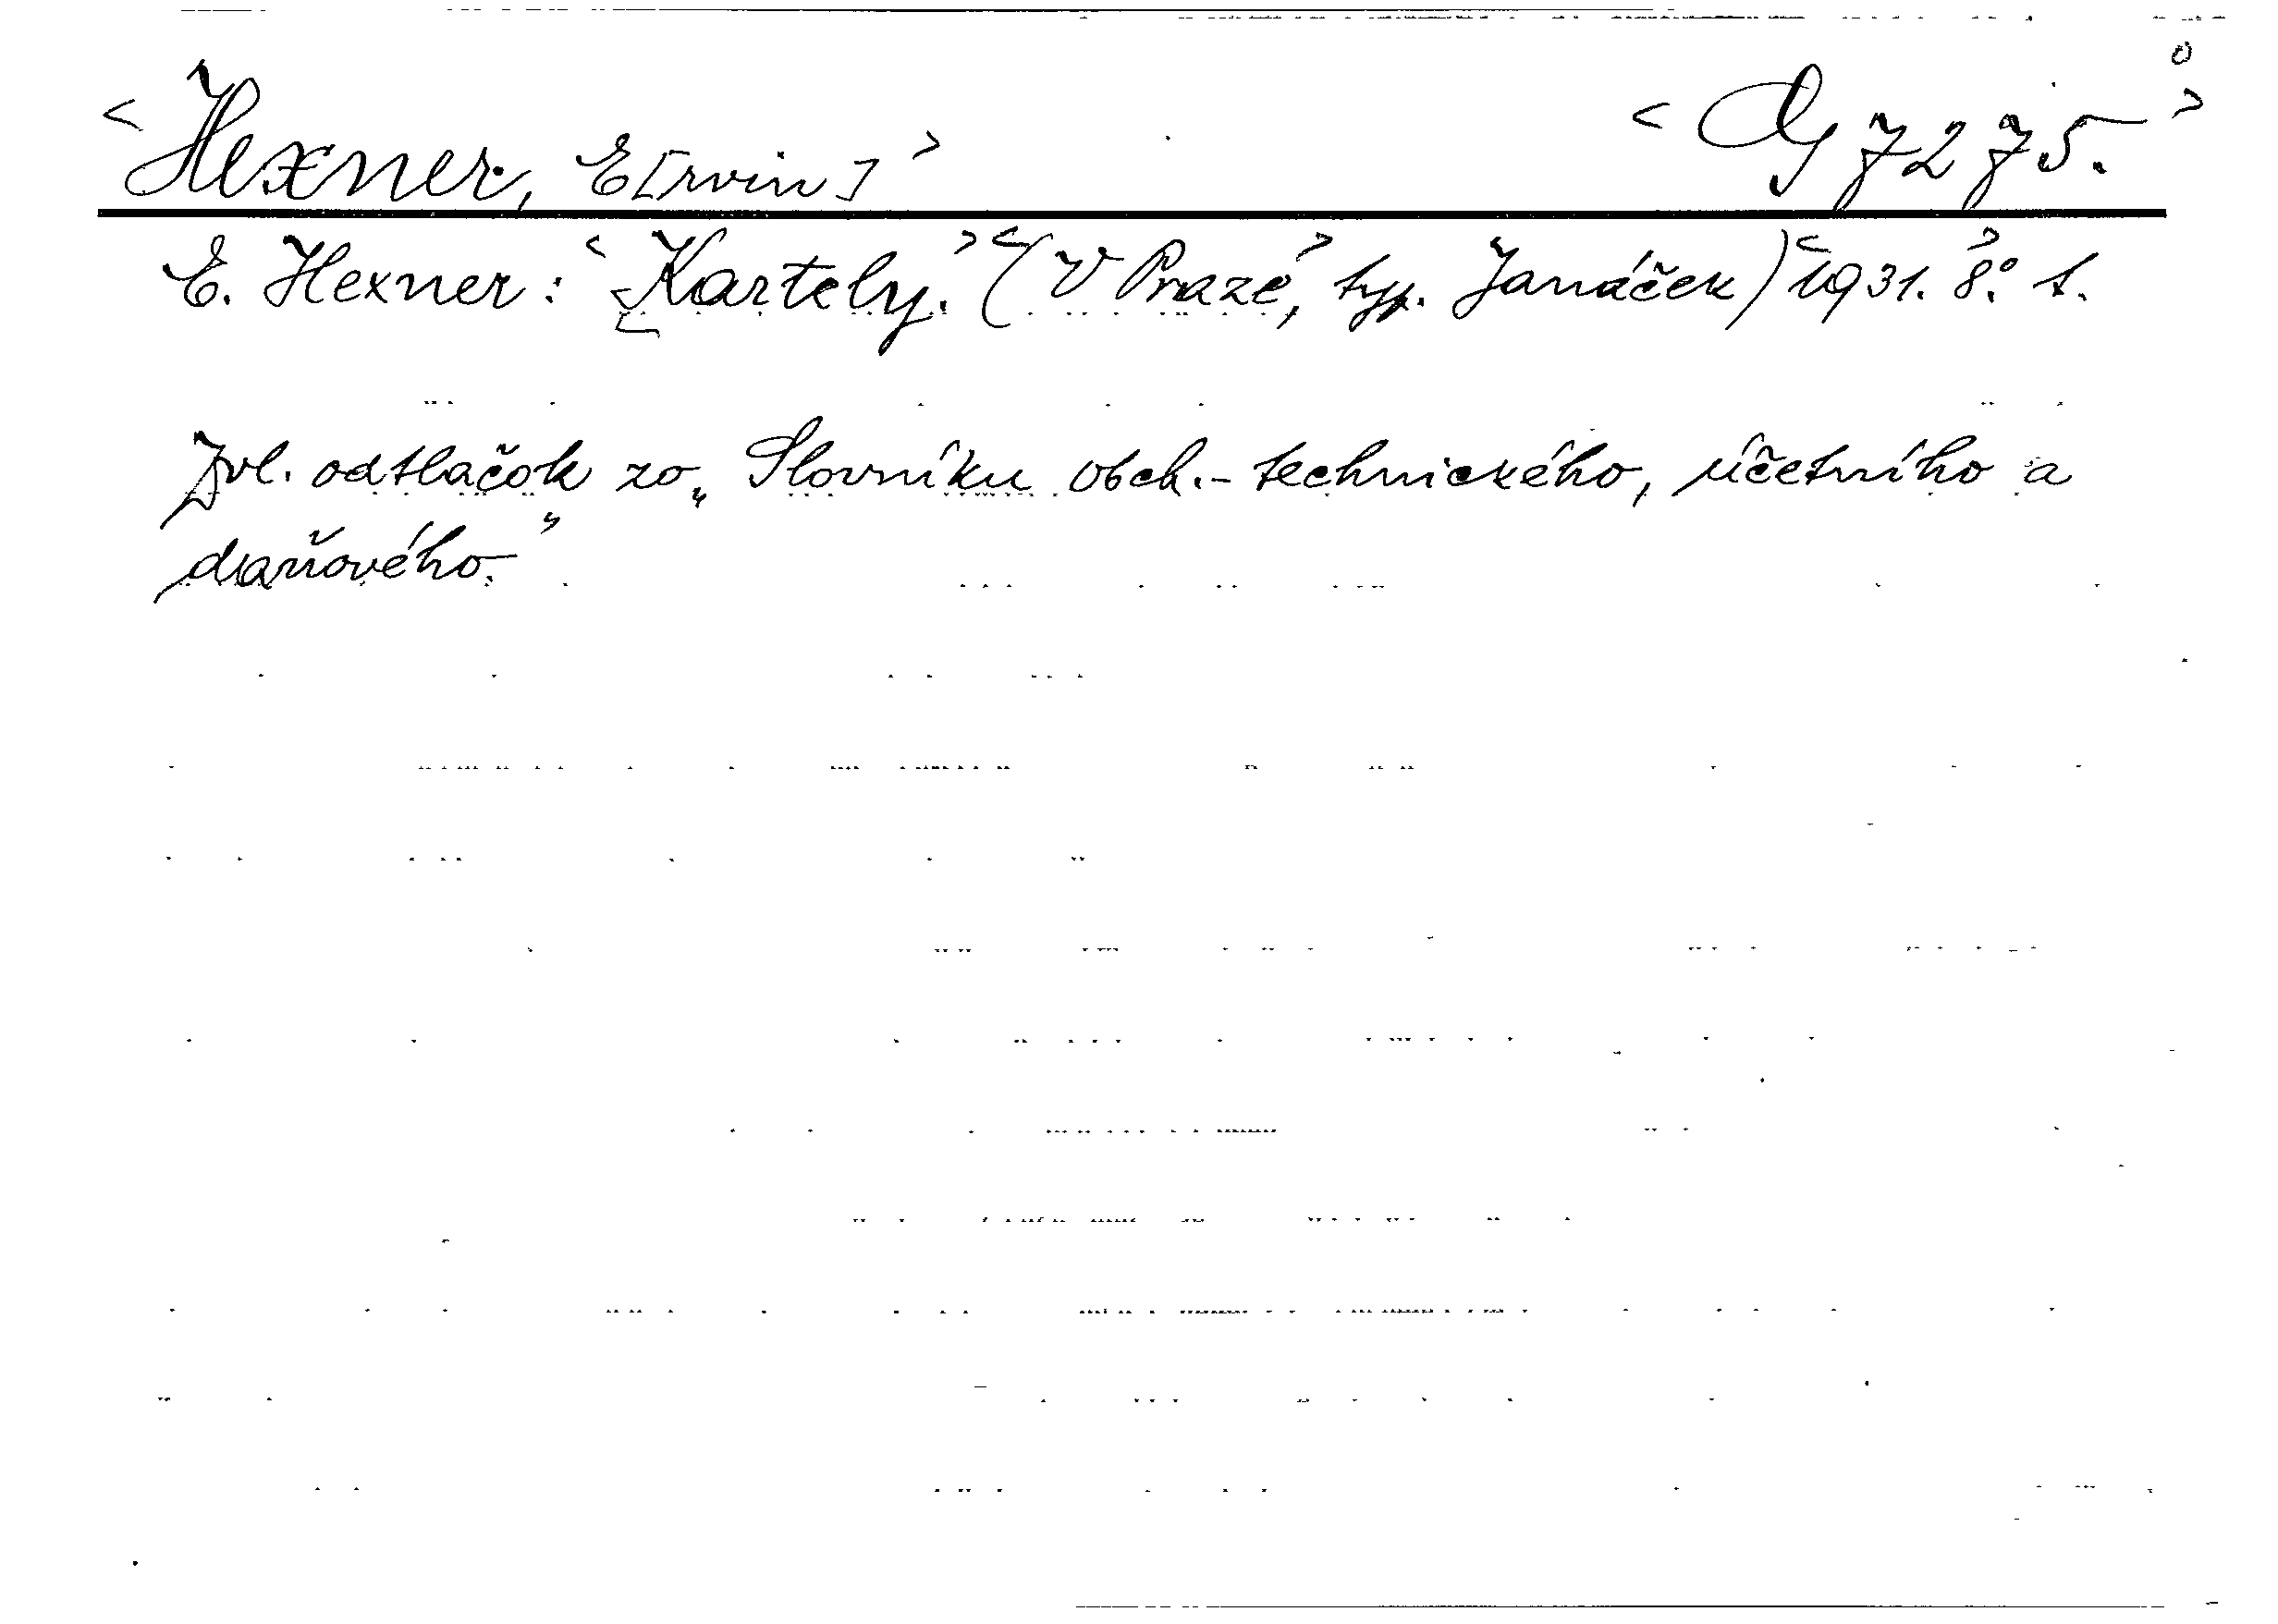 <Hexner, E[rvin]> <G 7275.>
E. Hexner: <Kartely.> <(V Praze,> typ. Janáček) <1931. 8.°> 1.
Zvl. odtlačok zo „Slovníku obch.-technického, účetního a
daňového."